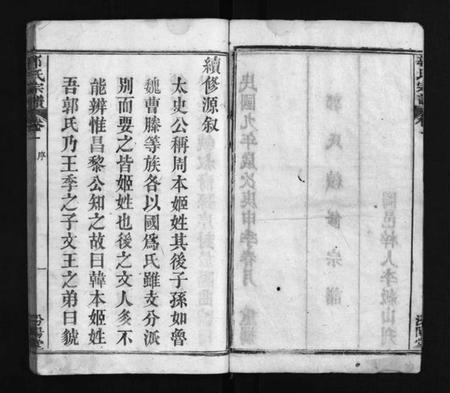 郭氏續修宗譜
民國九年歲次庚申季春月
續修源叙
太史公稱周本姬姓其後子孫如魯
魏曹滕等族各以國爲氏雖支分派
別而要之皆姬姓也後之文人多不
能辨惟昌黎公知之故曰韓本姬姓
吾郭氏乃王季之子文王之弟曰虢
郭氏宗譜
卷一
序
一
汾陽堂